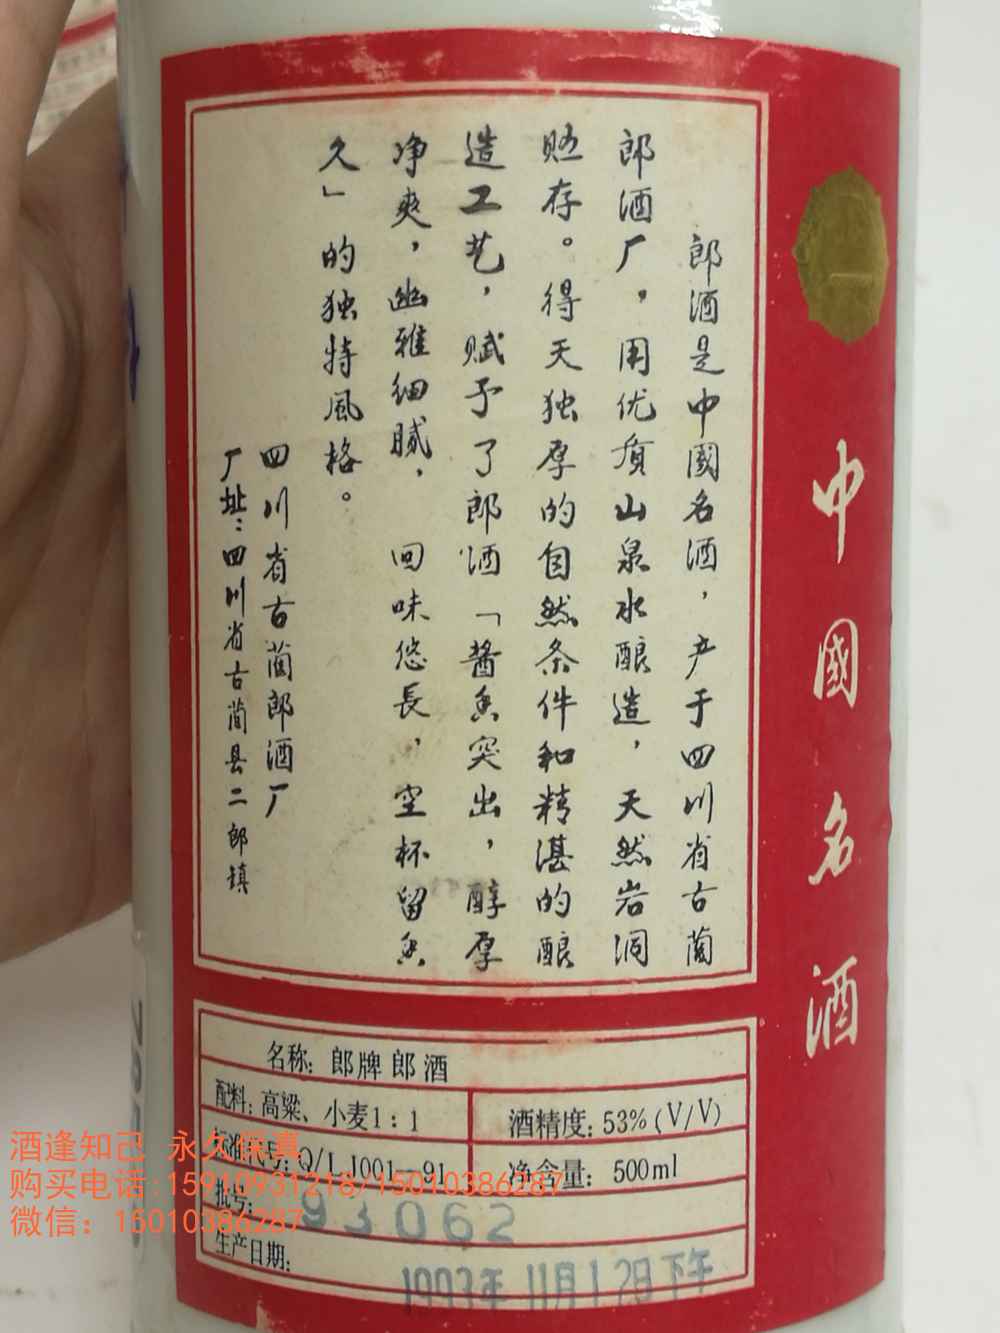 郎酒是中國名酒，产于四川省古蔺
郎酒厂。用优质山泉水酿造，天然岩洞
贮存。得天独厚的自然条件和精湛的酿
造工艺，赋予了郎酒「酱香突出，醇厚
净爽，幽雅细腻，回味悠長，空杯留香
久」的独特風格。
四川省古蔺郎酒厂
厂址：四川省古蔺县二郎镇
中國名酒
名称：郎牌郎酒
配料：高粱、小麦1：1
酒精度：53%(V/V)
标准代号：Q/LJ001—91
净含量：500ml
批号：93062
生产日期：1993年11月12日下午
酒逢知己 永久保真
购买电话:15910931218/15010386287
微信：15010386287